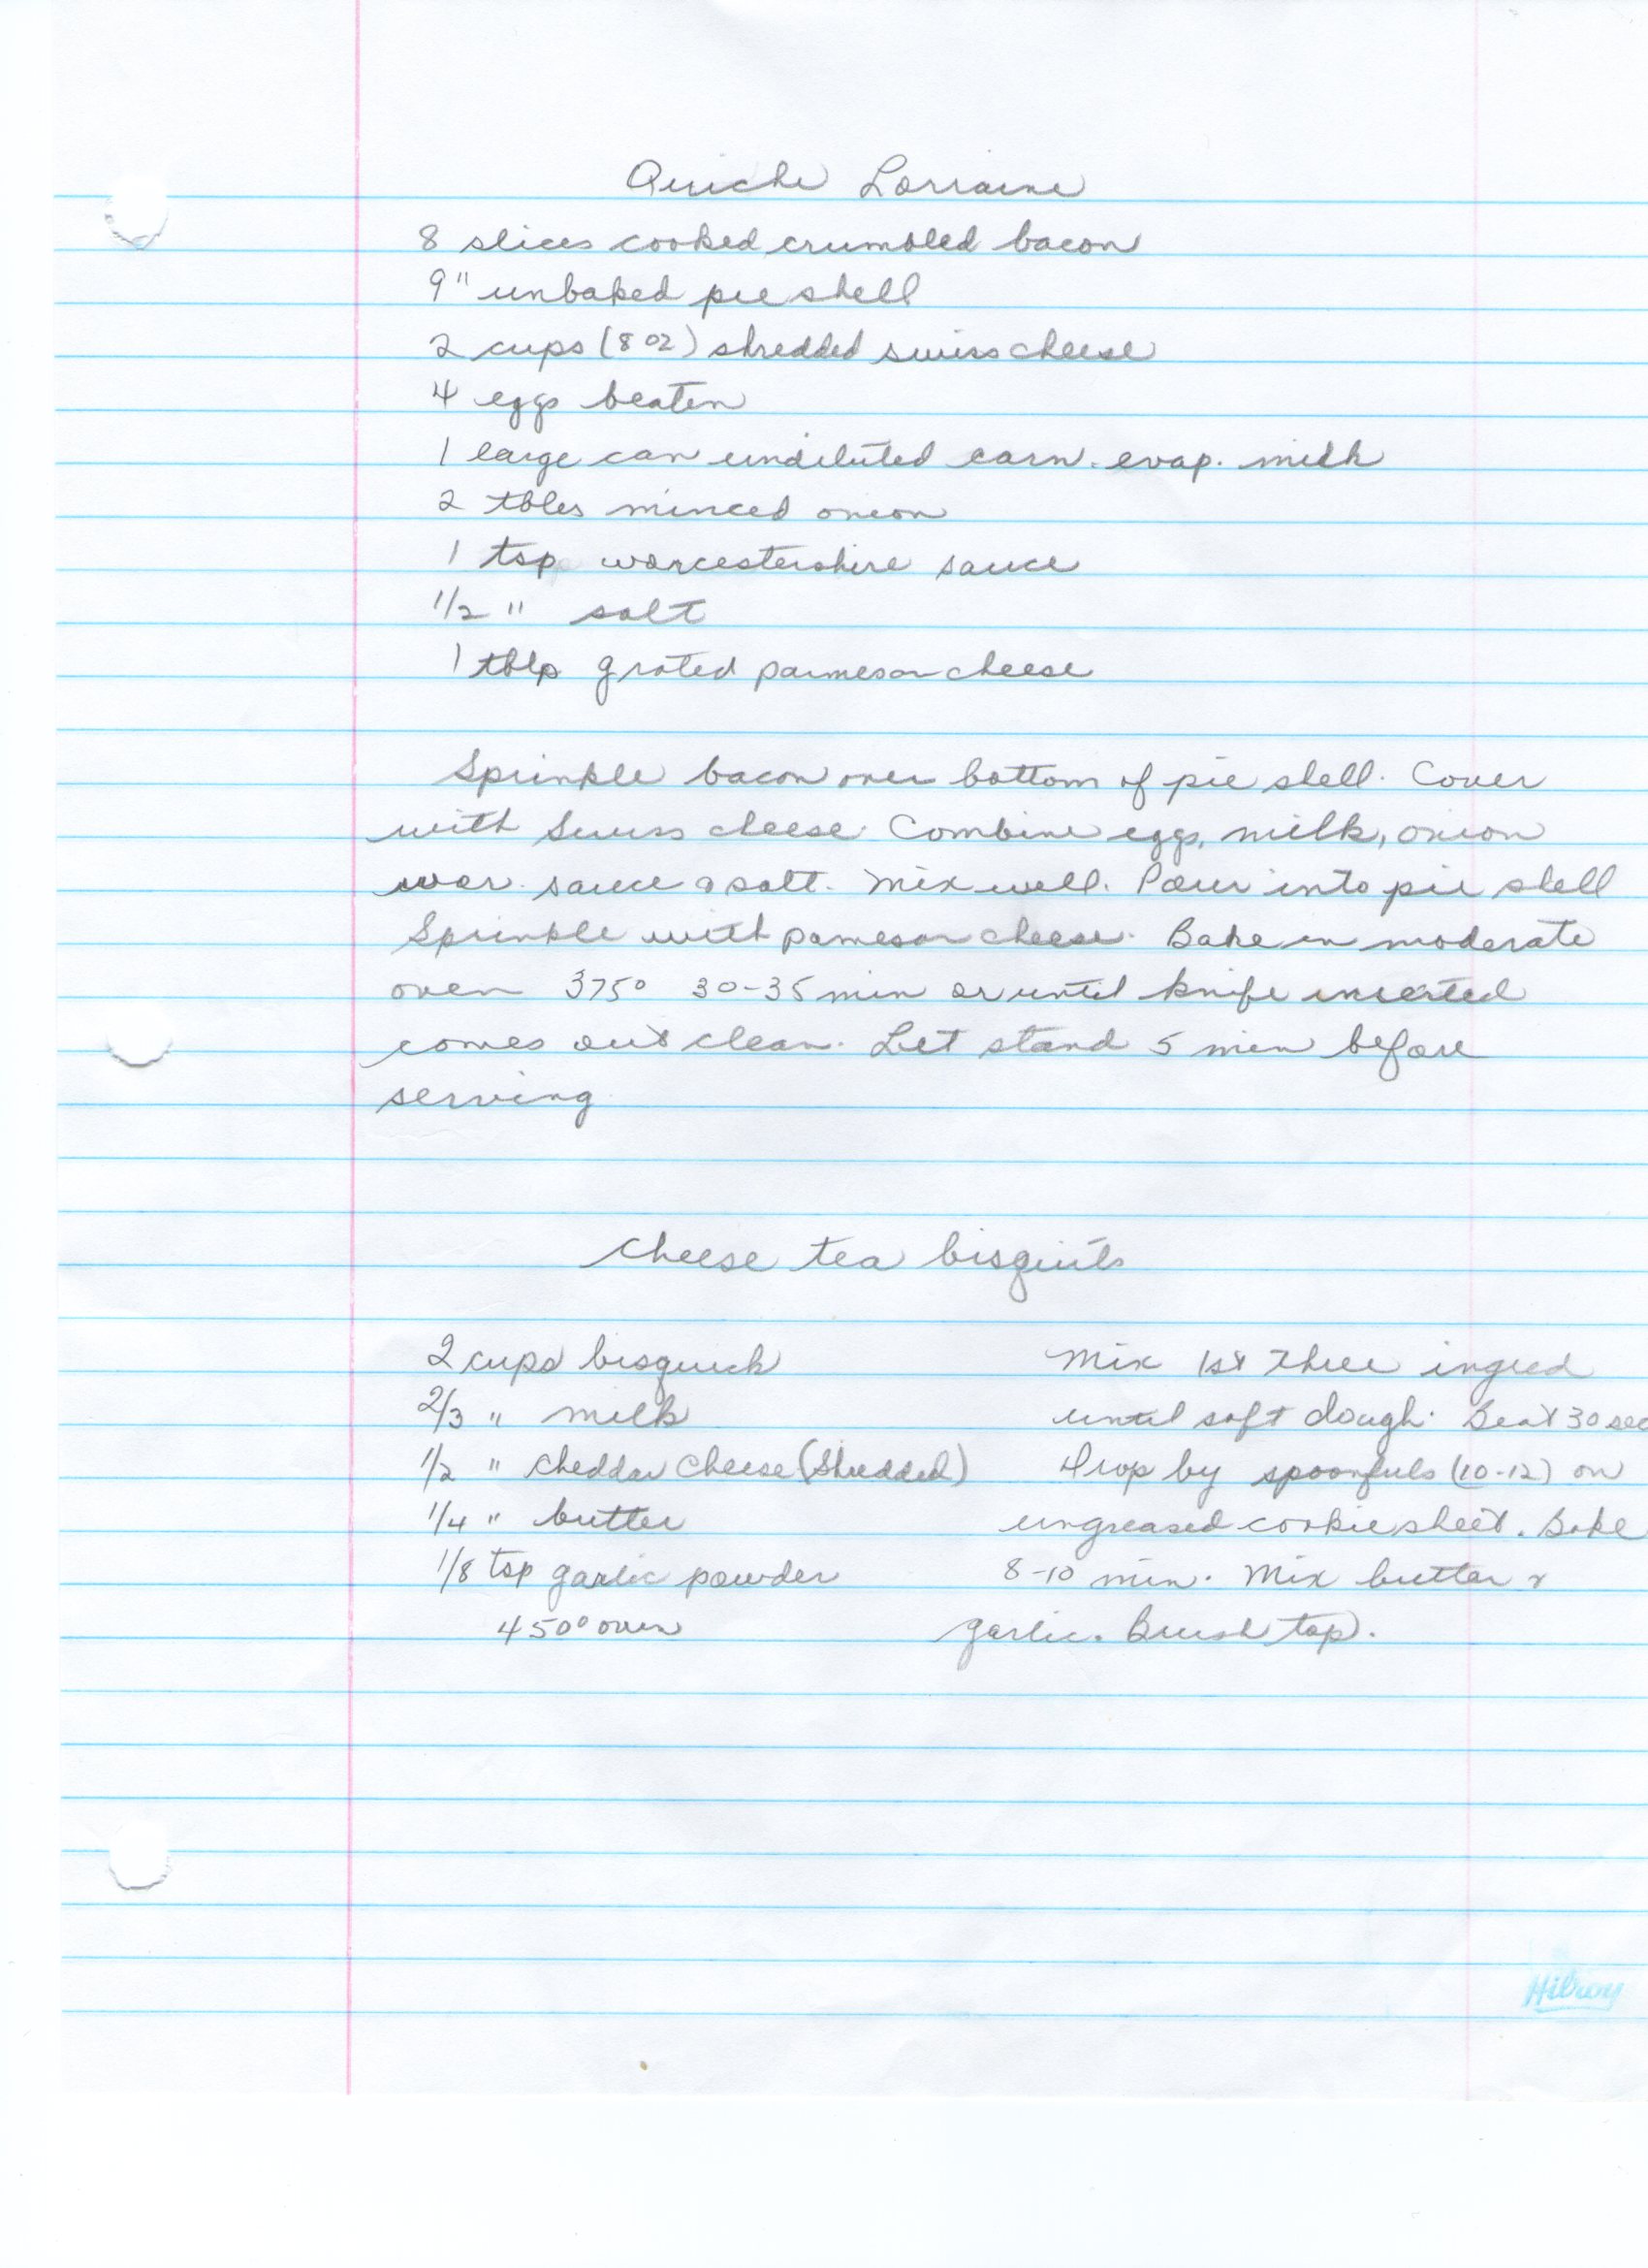 Quiche Lorraine
8 slices cooked crumbled bacon
9" unbaked pie shell
2 cups (8 oz) shredded swiss cheese
4 eggs beaten
1 large can undiluted carn. evap. milk
2 tbles minced onion
1 tsp worcestershire sauce
1/2 " salt
1 tblp grated parmesan cheese
Sprinkle bacon over bottom of pie shell. Cover
with Swiss cheese. Combine eggs, milk, onion
wor. sauce & salt. Mix well. Pour into pie shell
Sprinkle with pamesan cheese. Bake in moderate
oven 375° 30-35 min or until knife inserted
comes out clean. Let stand 5 min before
serving
Cheese tea bisquits
2 cups bisquick
2/3 " milk
1/2 " cheddar cheese (Shredded)
1/4 " butter
1/8 tsp garlic powder
450° oven
Mix 1st three ingred
until soft dough. Beat 30 sec
Drop by spoonfuls (10-12) on
ungreased cookie sheet. Bake
8-10 min. Mix butter &
garlic. Brush top.
Hilroy